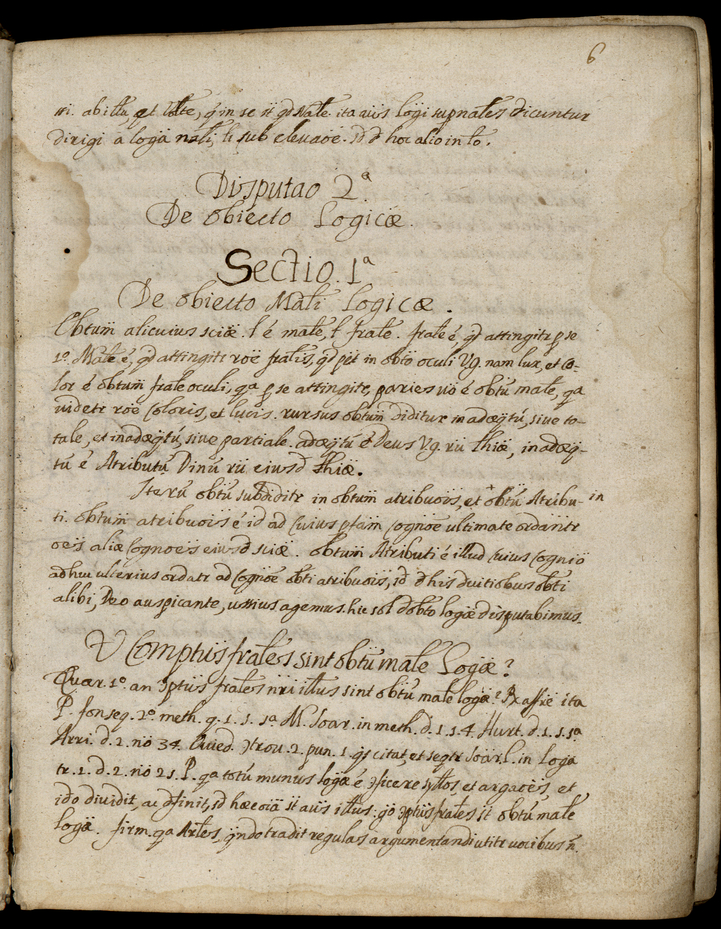 6
iri. ab illa, et Ulte, q in se st qd Nale. ita aūs Logi supnales dicuntur
dirigi a loga nali, li sub elevaoē. sd d hoc alio in lo.
Disputao 2ª.
De obiecto Logicæ.
Sectio 1ª
De obiecto Mali Logicæ.
Obtum alicuius sciæ. l é male, l frale. frale é, qd attingitr p se
1º. Male é, qd attingitr roē fralis, qs pēt in obto oculi Vg. nam lux, et Co-
lor é obtum frale oculi, qª p se attingitr, paries vō é obtū male, qª
videtr roē Coloris, et lucis. rursus obtum diditur in adæqtū, sive to-
tale, et inadæqtū, sive partiale. adæqtū é Deus Vg. rū thiæ, inadæq-
tū é Atributū Dinū rū eiusd thiæ.
Iterū obtū subdiditr in obtum atribuois, et in obtū Atribu-
ti. obtum atribuois é id ad Cuius plam Cognoē ultimate ordantr
oēs aliæ Cognoēs eiusd sciæ. obtum Atributi é illud Cuius Cognio
adhuc ulterius ordatr ad Cognoē obti atribuois, sd d his divitiobus obti
alibi, Deo auspicante, ussius agemus. hic sol d obto logæ disputabimus.
V Comptūs frales sint obtū male Logæ?
Quær. 1º. an Cptūs frales nri illus sint obtū male logæ? Rx affre ita
P. fonseq. 2º. meth. q. 1. s. 1ª M. Soar. in meth. d. 1. s. 4. Hurt. d. 1. s. 1ª
Arri. d. 2. no 34. Ovied. Ctrou. 2. pun. 1. qs citat, et seqtr Soar L. in Loga
tr. 1. d. 2. no 21. P. qª totū munus logæ é Cficere syllos, et argaoēs, et
ido dividit, ac dfinit, sd hæc oīa st aūs illus: go Cptūs frales st obtū male
logæ. firm. qª Arles, qndo tradit regulas argumentandi utitr vocibus n.